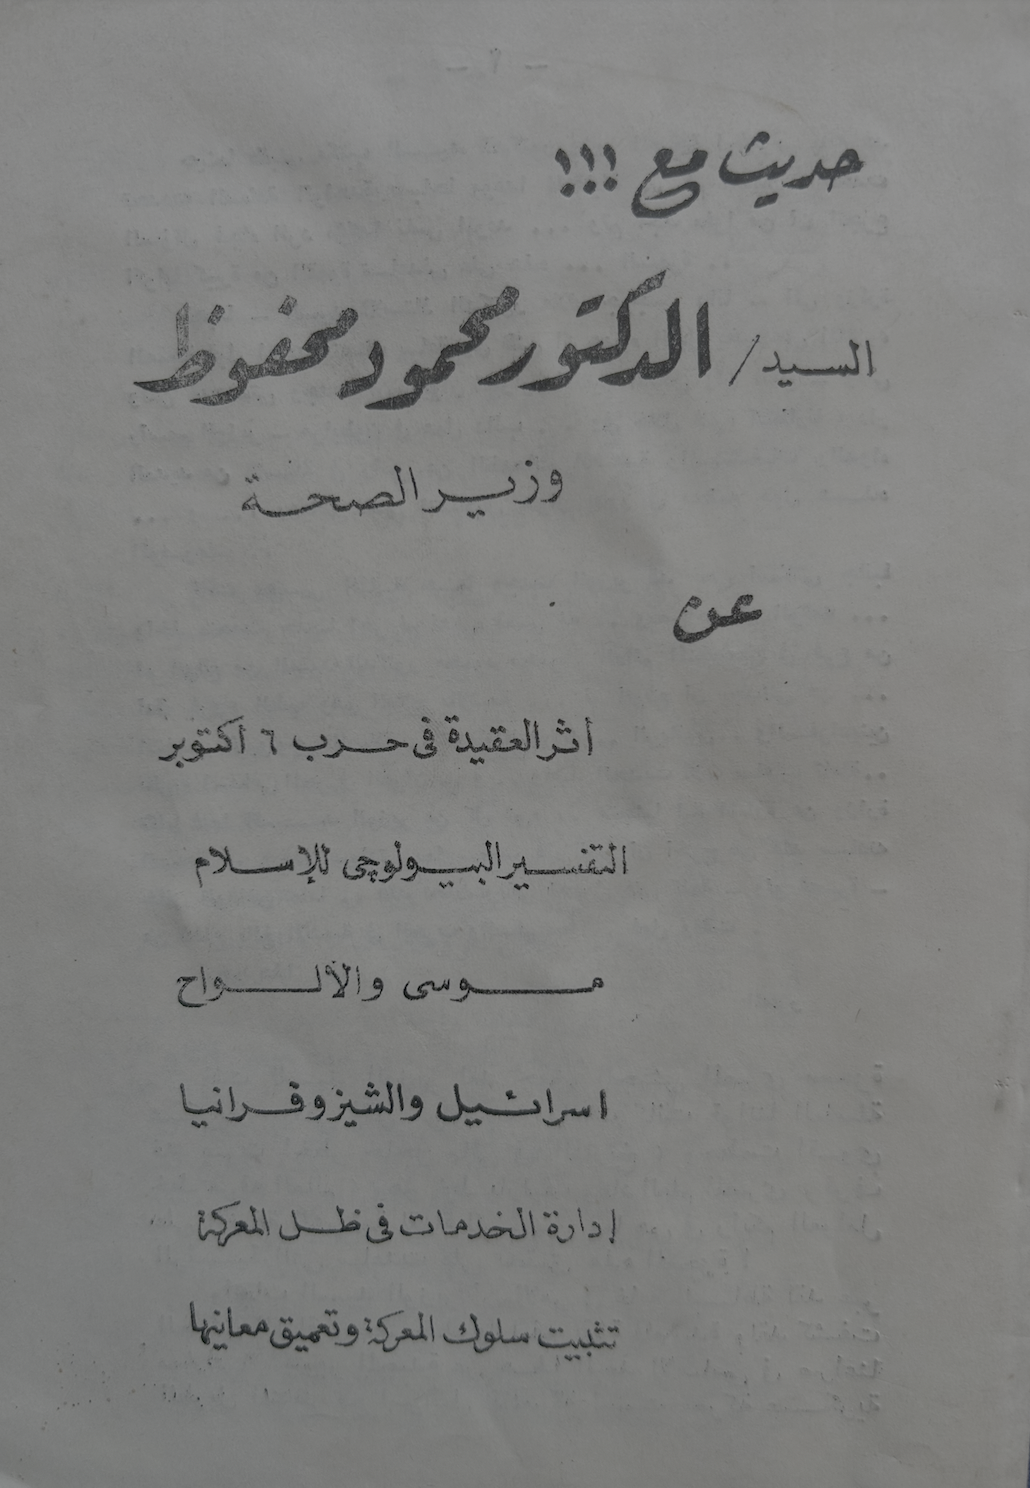 حديث مع !!!
السيد / الدكتور محمود محفوظ
وزير الصحة
عن
أثر العقيدة فى حرب ٦ أكتوبر
التفسير البيولوچى للإسلام
موسى والألواح
اسرائيل والشيزوفرانيا
إدارة الخدمات فى ظل المعركة
تثبيت سلوك المعركة وتعميق معانيها